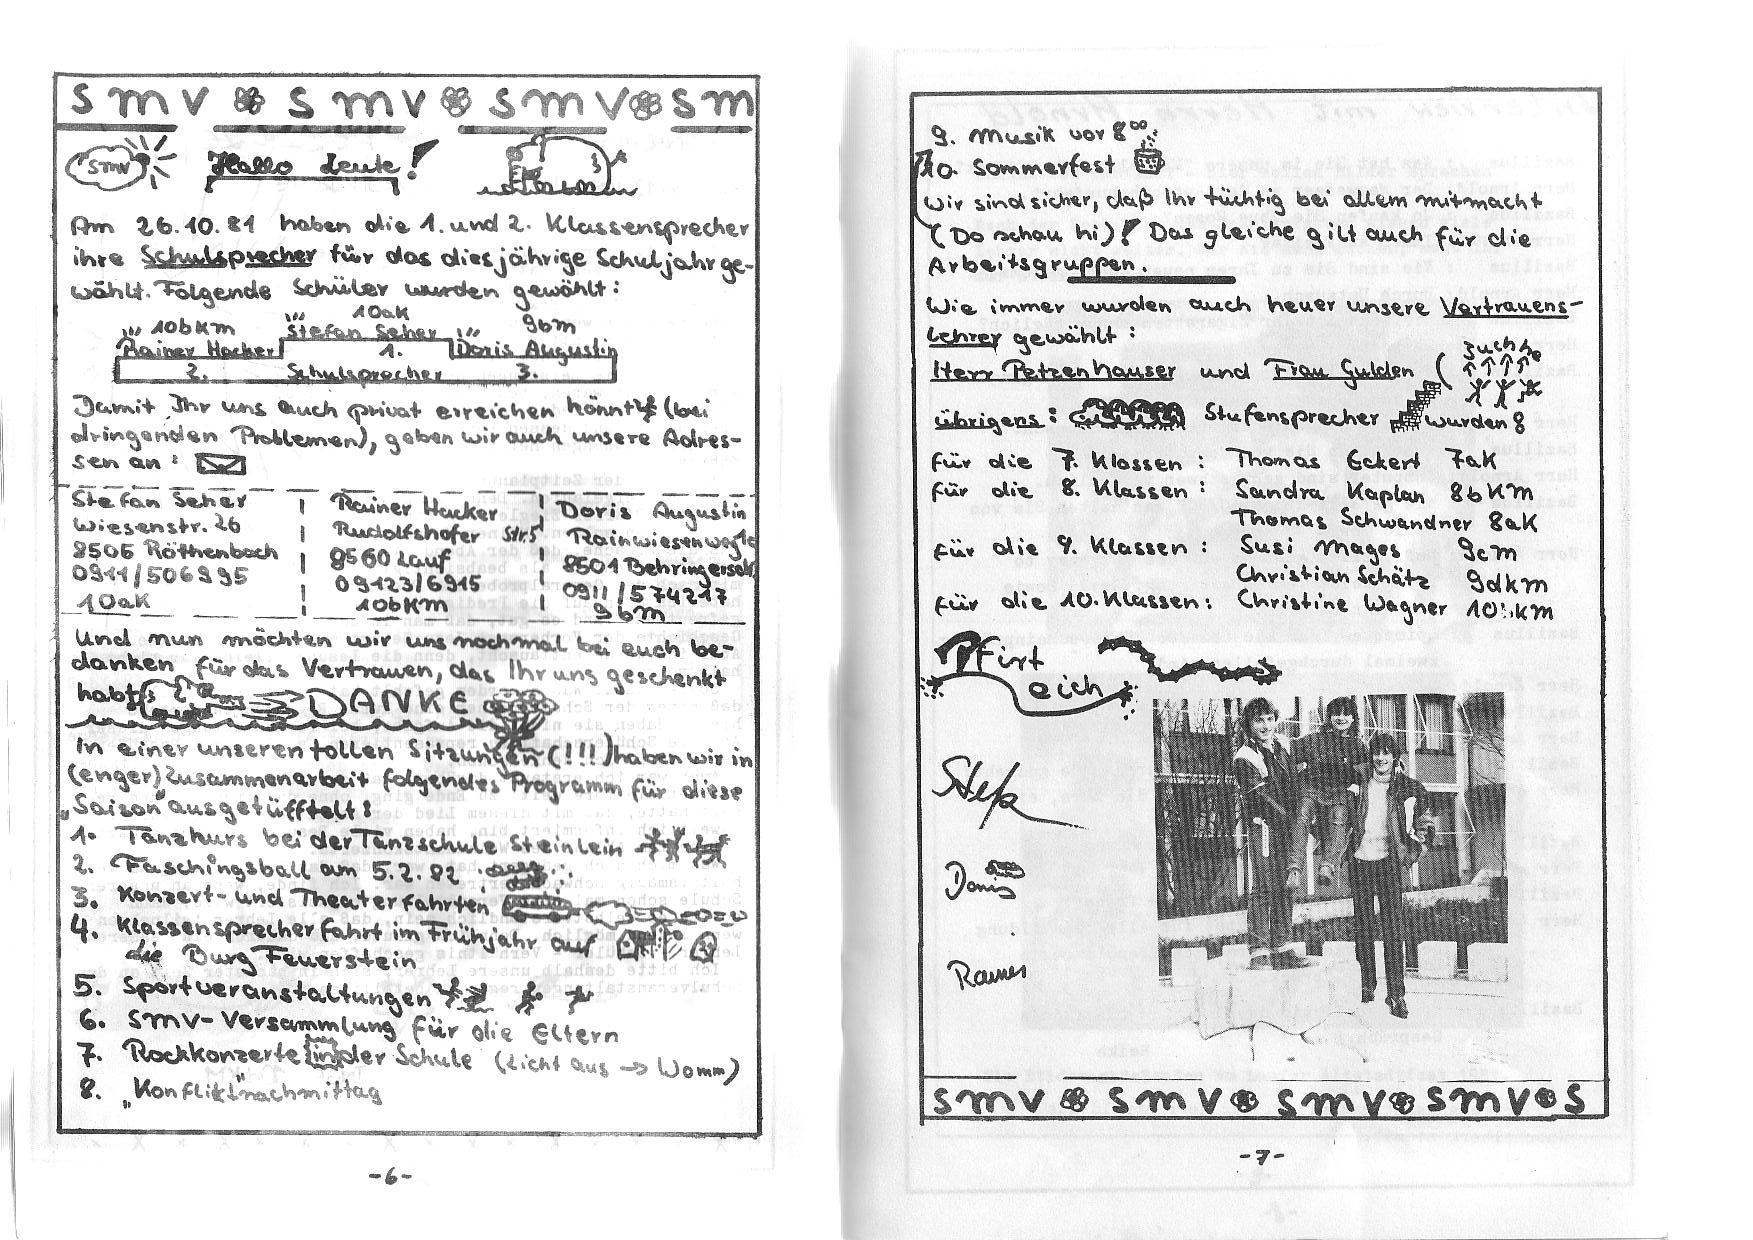 SMV SMV SMV SM
SMV
Hallo Leute!
Am 26.10.81 haben die 1. und 2. Klassensprecher
ihre Schulsprecher für das diesjährige Schuljahr ge-
wählt. Folgende Schüler wurden gewählt:
10bKm 10aK 9bm
Rainer Hacker Stefan Seher Doris Augustin
2. 1. 3.
Schulsprecher
Damit Ihr uns auch privat erreichen könnt (bei
dringenden Problemen), geben wir auch unsere Adres-
sen an:
Stefan Seher
Wiesenstr. 26
8505 Röthenbach
0911/506995
10aK
Rainer Hacker
Rudolfshofer Str. 5
8560 Lauf
09123/6915
10bKm
Doris Augustin
Rainwiesenweg
8501 Behringersd
0911/574217
9bm
Und nun möchten wir uns nochmal bei euch be-
danken für das Vertrauen, das Ihr uns geschenkt
habt: DANKE
In einer unseren tollen Sitzungen (!!!) haben wir in
(enger) Zusammenarbeit folgendes Programm für diese
„Saison" ausgetüfftelt:
1. Tanzkurs bei der Tanzschule Steinlein
2. Faschingsball am 5.2.82
3. Konzert- und Theaterfahrten
4. Klassensprecherfahrt im Frühjahr auf
die Burg Feuerstein
5. Sportveranstaltungen
6. SMV-Versammlung für die Eltern
7. Rockkonzerte in der Schule (Licht aus → Womm)
8. „Konflikt"nachmittag
-6-
9. Musik vor 8⁰⁰
10. Sommerfest
Wir sind sicher, daß Ihr tüchtig bei allem mitmacht
(Do schau hi)! Das gleiche gilt auch für die
Arbeitsgruppen.
Wie immer wurden auch heuer unsere Vertrauens-
lehrer gewählt:
Juchhe
Herr Petzenhauser und Frau Gulden (
übrigens: Stufensprecher wurden:
für die 7. Klassen: Thomas Eckert 7aK
für die 8. Klassen: Sandra Kaplan 8bKm
Thomas Schwandner 8aK
für die 9. Klassen: Susi Mages 9cm
Christian Schätz 9dkm
für die 10. Klassen: Christine Wagner 10 km
Pfirt
eich
Stefan
Doris
Rainer
SMV SMV SMV SMV S
-7-